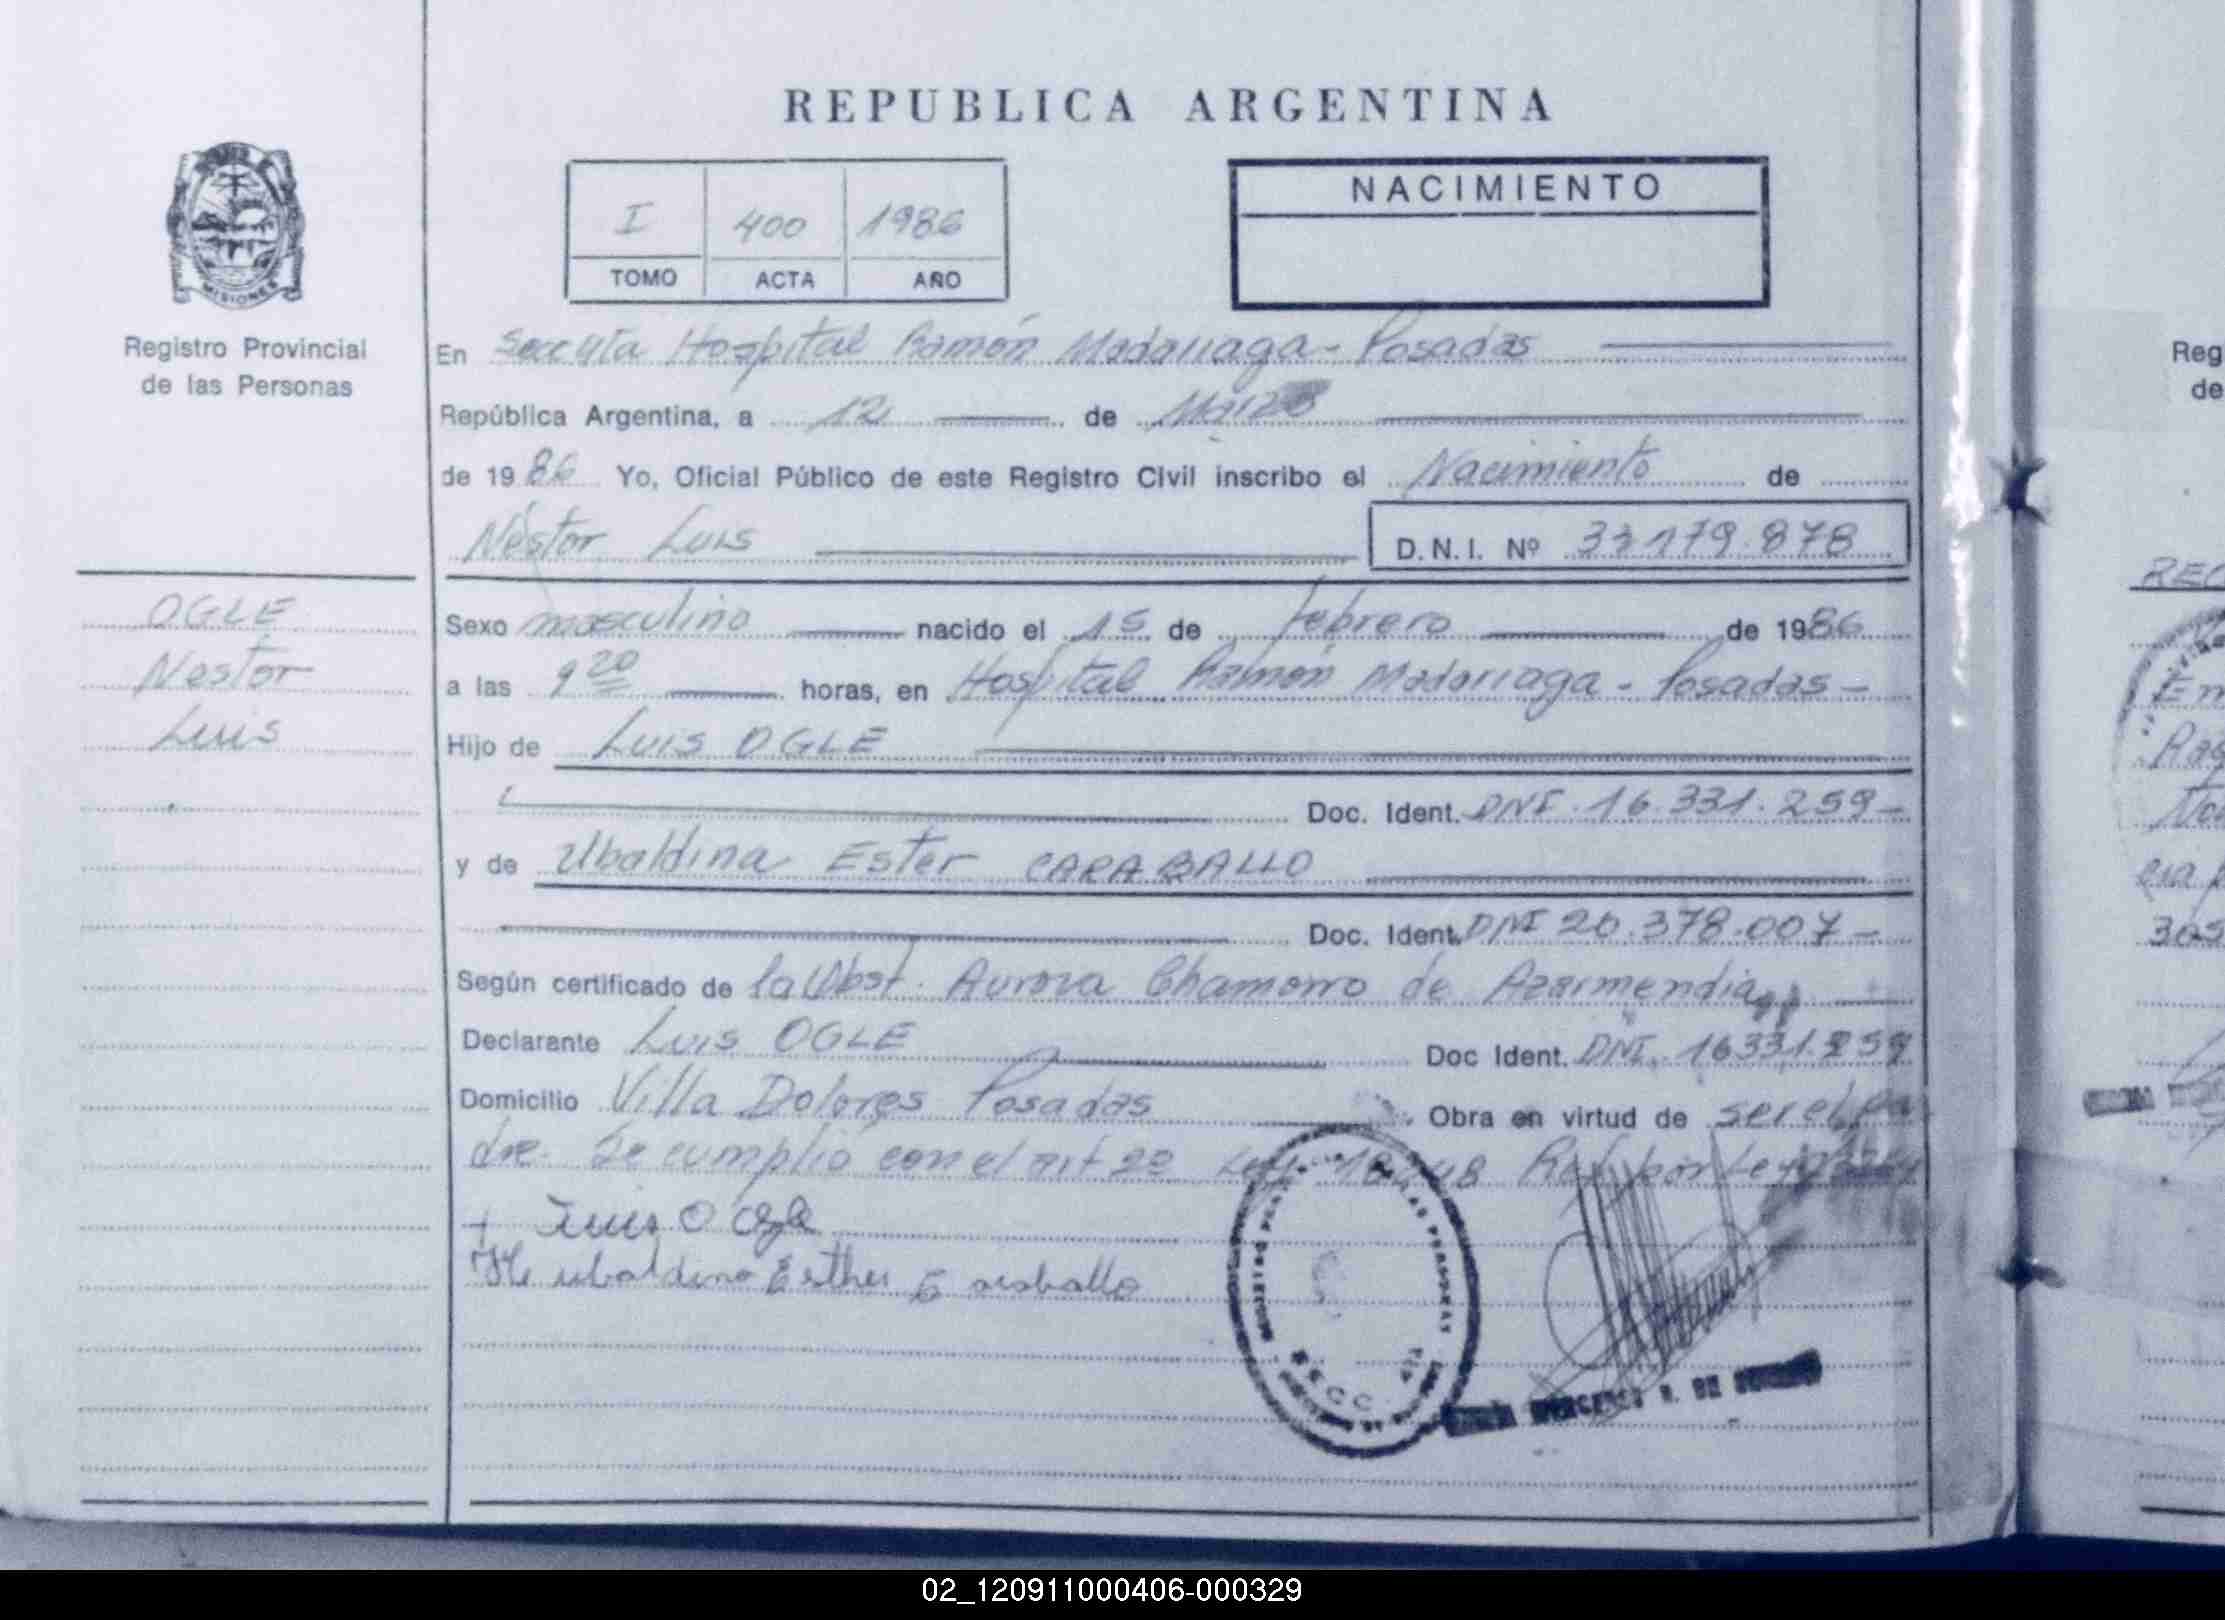 REPUBLICA ARGENTINA
MISIONES
Registro Provincial
de las Personas
I 400 1986
TOMO ACTA AÑO
NACIMIENTO
En Secc yta Hospital Ramón Madariaga - Posadas
República Argentina, a 12 de Marzo
de 1986 Yo, Oficial Público de este Registro Civil inscribo el Nacimiento de
Néstor Luis D.N.I. Nº 33179.878
OGLE
Nestor
Luis
Sexo masculino nacido el 15 de febrero de 1986
a las 9 20 horas, en Hospital Ramón Madariaga - Posadas -
Hijo de Luis OGLE
Doc. Ident. DNI. 16.331.259-
y de Ubaldina Ester CARABALLO
Doc. Ident. DNI 20.378.007-
Según certificado de la Obst. Aurora Chamorro de Azarmendia
Declarante Luis OGLE Doc Ident. DNI. 16331.259
Domicilio Villa Dolores Posadas Obra en virtud de ser el pa
dre. Se cumplió con el art 2º Ley 18248 Ref. por Ley
Luis O Ogle
ubaldina Esther Caraballo
02_120911000406-000329